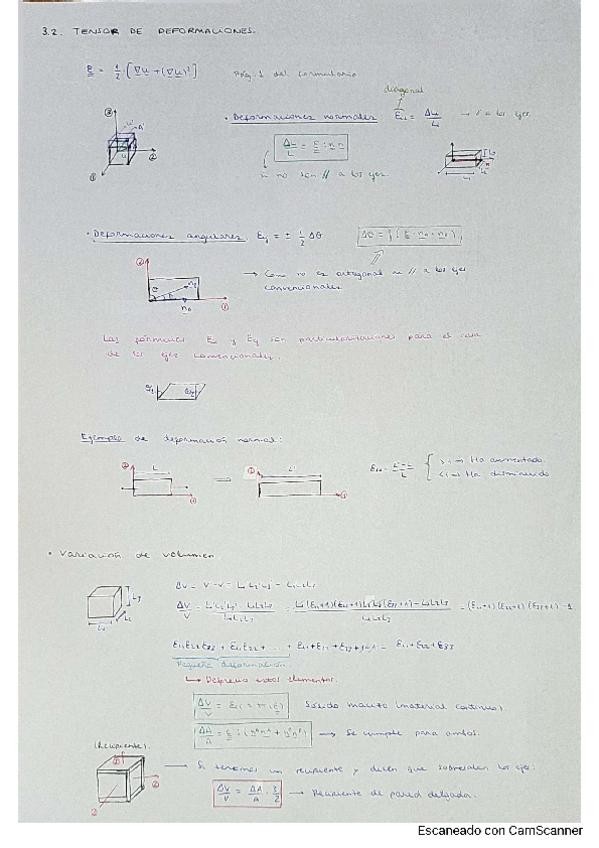 3.2. TENSOR DE DEFORMACIONES.
E = 1/2 · [∇u + (∇u)ᵀ] Pág. 1 del formulario
diagonal
• Deformaciones normales Eii = Δu/Li → // a los ejes
ΔL/L = E : n n
si no son // a los ejes
• Deformaciones angulares Eij = ± 1/2 Δθ
→ Como no es ortogonal ni // a los ejes
convencionales
Las fórmulas Eii y Eij son particularizaciones para el caso
de los ejes convencionales.
Ejemplo de deformación normal:
L L'
E22 = L'-L/L { > 0 → Ha aumentado
< 0 → Ha disminuido
• Variación de volumen
ΔV = V'-V = L1'L2'L3' - L1L2L3
ΔV/V = L1'L2'L3' - L1L2L3 / L1L2L3 = L1(E11+1)(E22+1)L2L3(E33+1) - L1L2L3 / L1L2L3 = (E11+1)(E22+1)(E33+1) - 1
E11E22E33 + E11E22 + ... + E11+E22+E33+1-1 = E11+E22+E33
Pequeña deformación.
↳ Desprecio estos elementos.
ΔV/V = Eii = tr(E) Sólido macizo (material continuo)
→ Se cumple para ambos.
(Recipiente).
→ Si tenemos un recipiente y dicen que sobresalen los ejes:
ΔV/V = ΔA/A · 3/2 → Recipiente de pared delgada.
Escaneado con CamScanner